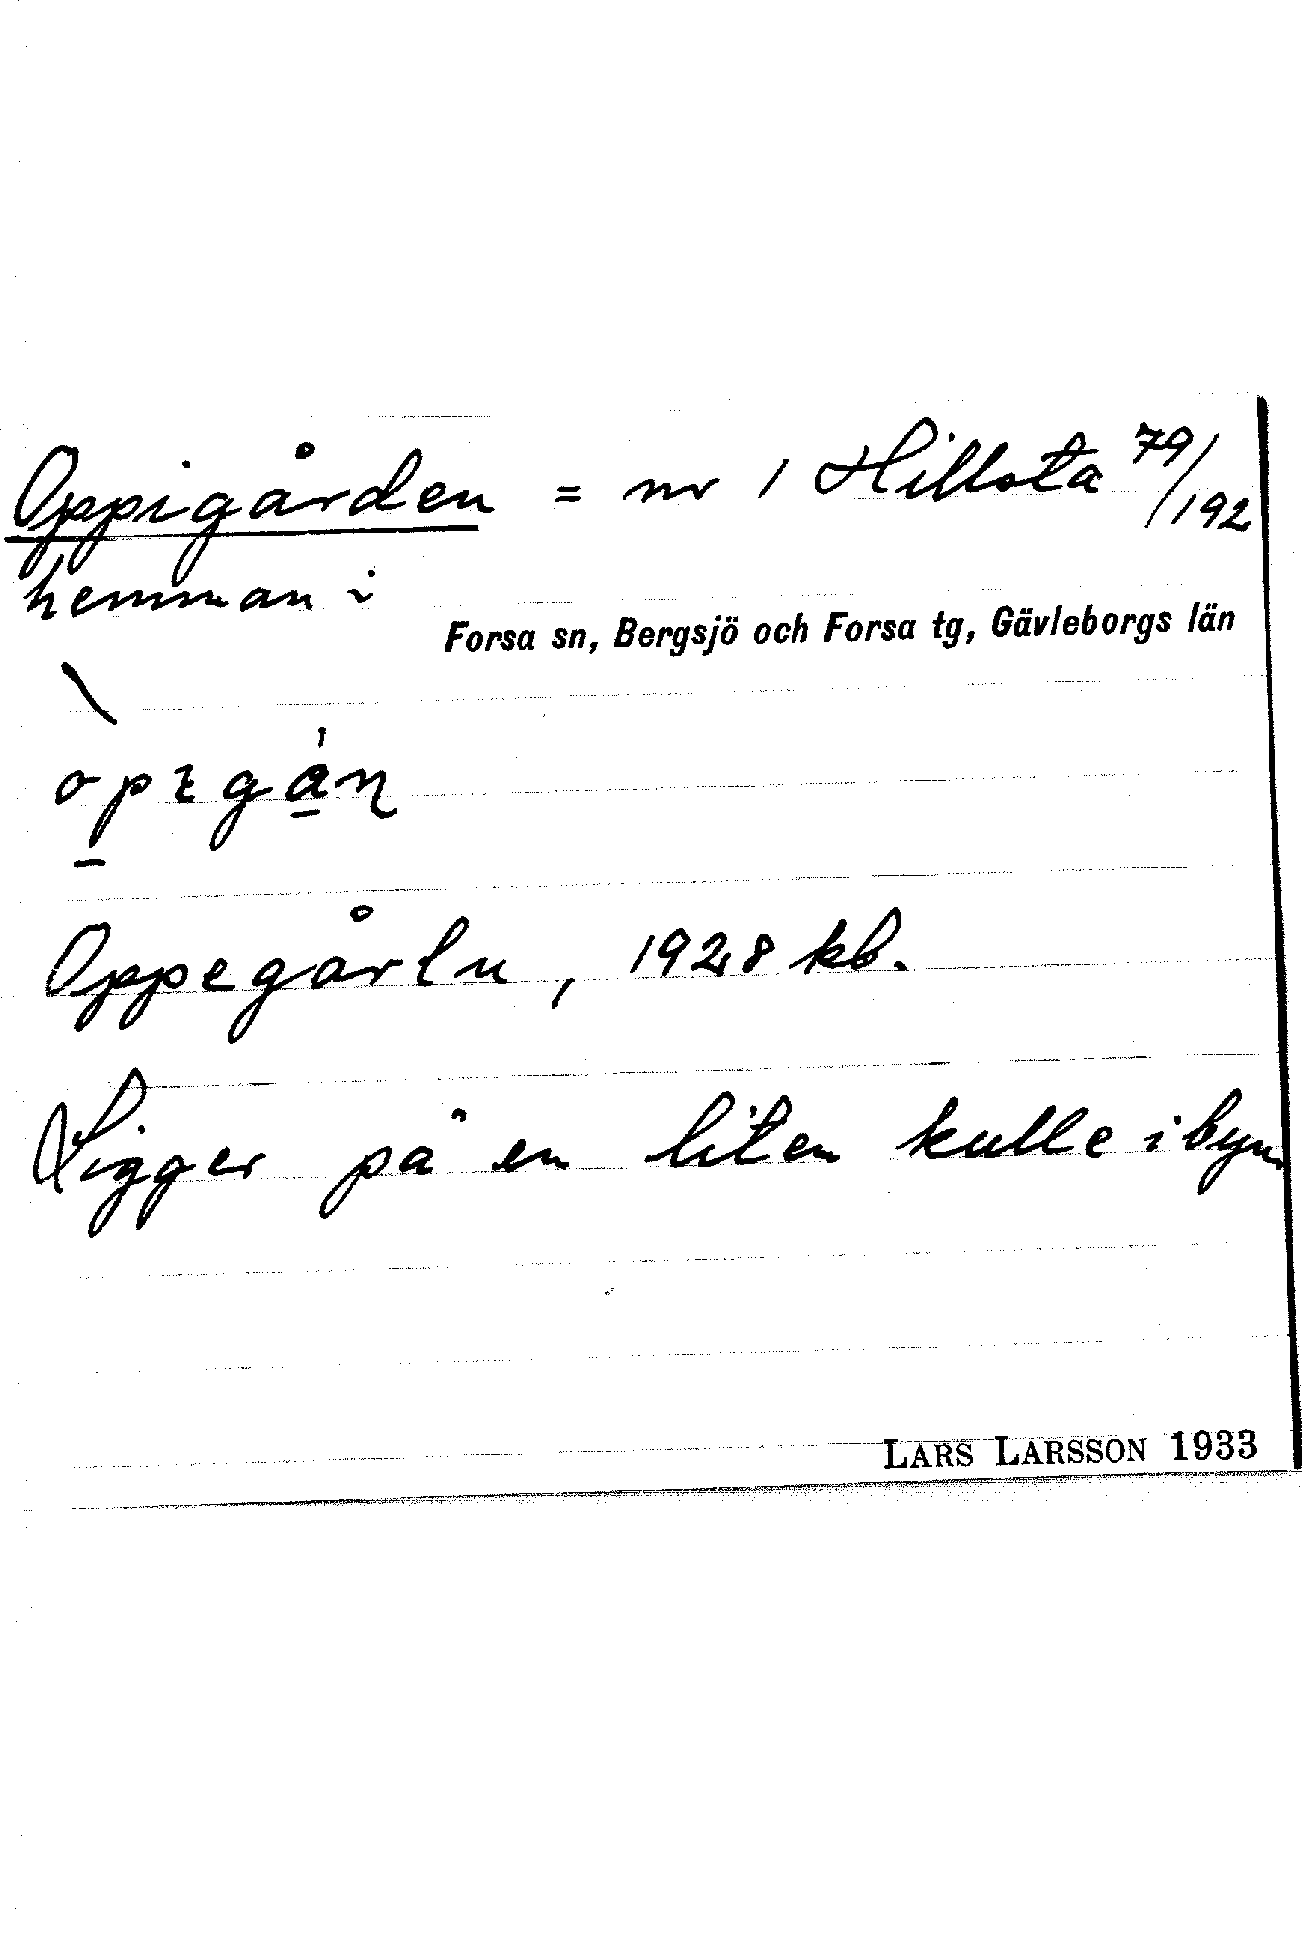 Oppigården = nr 1 Hillsta 79/192
hemman i
Forsa sn, Bergsjö och Forsa tg, Gävleborgs län
Oppegårln, 1928 kb.
Ligger på en liten kulle i byn.
LARS LARSSON 1933